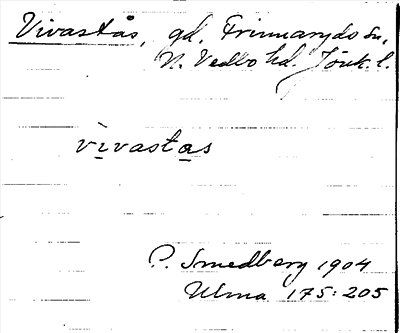 Vivastås, gd, Frinnaryds sn,
N. Vedbo hd. Jönk. l.
vìvastas
P. Smedberg 1904
Ulma 175:205